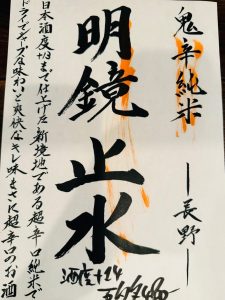 鬼辛純米
―長野―
明鏡止水
日本酒度+13まで仕上げた新境地である超辛口純米で
ドライでシャープな味わいと爽快なキレ味まさに超辛口のお酒
酒度+14